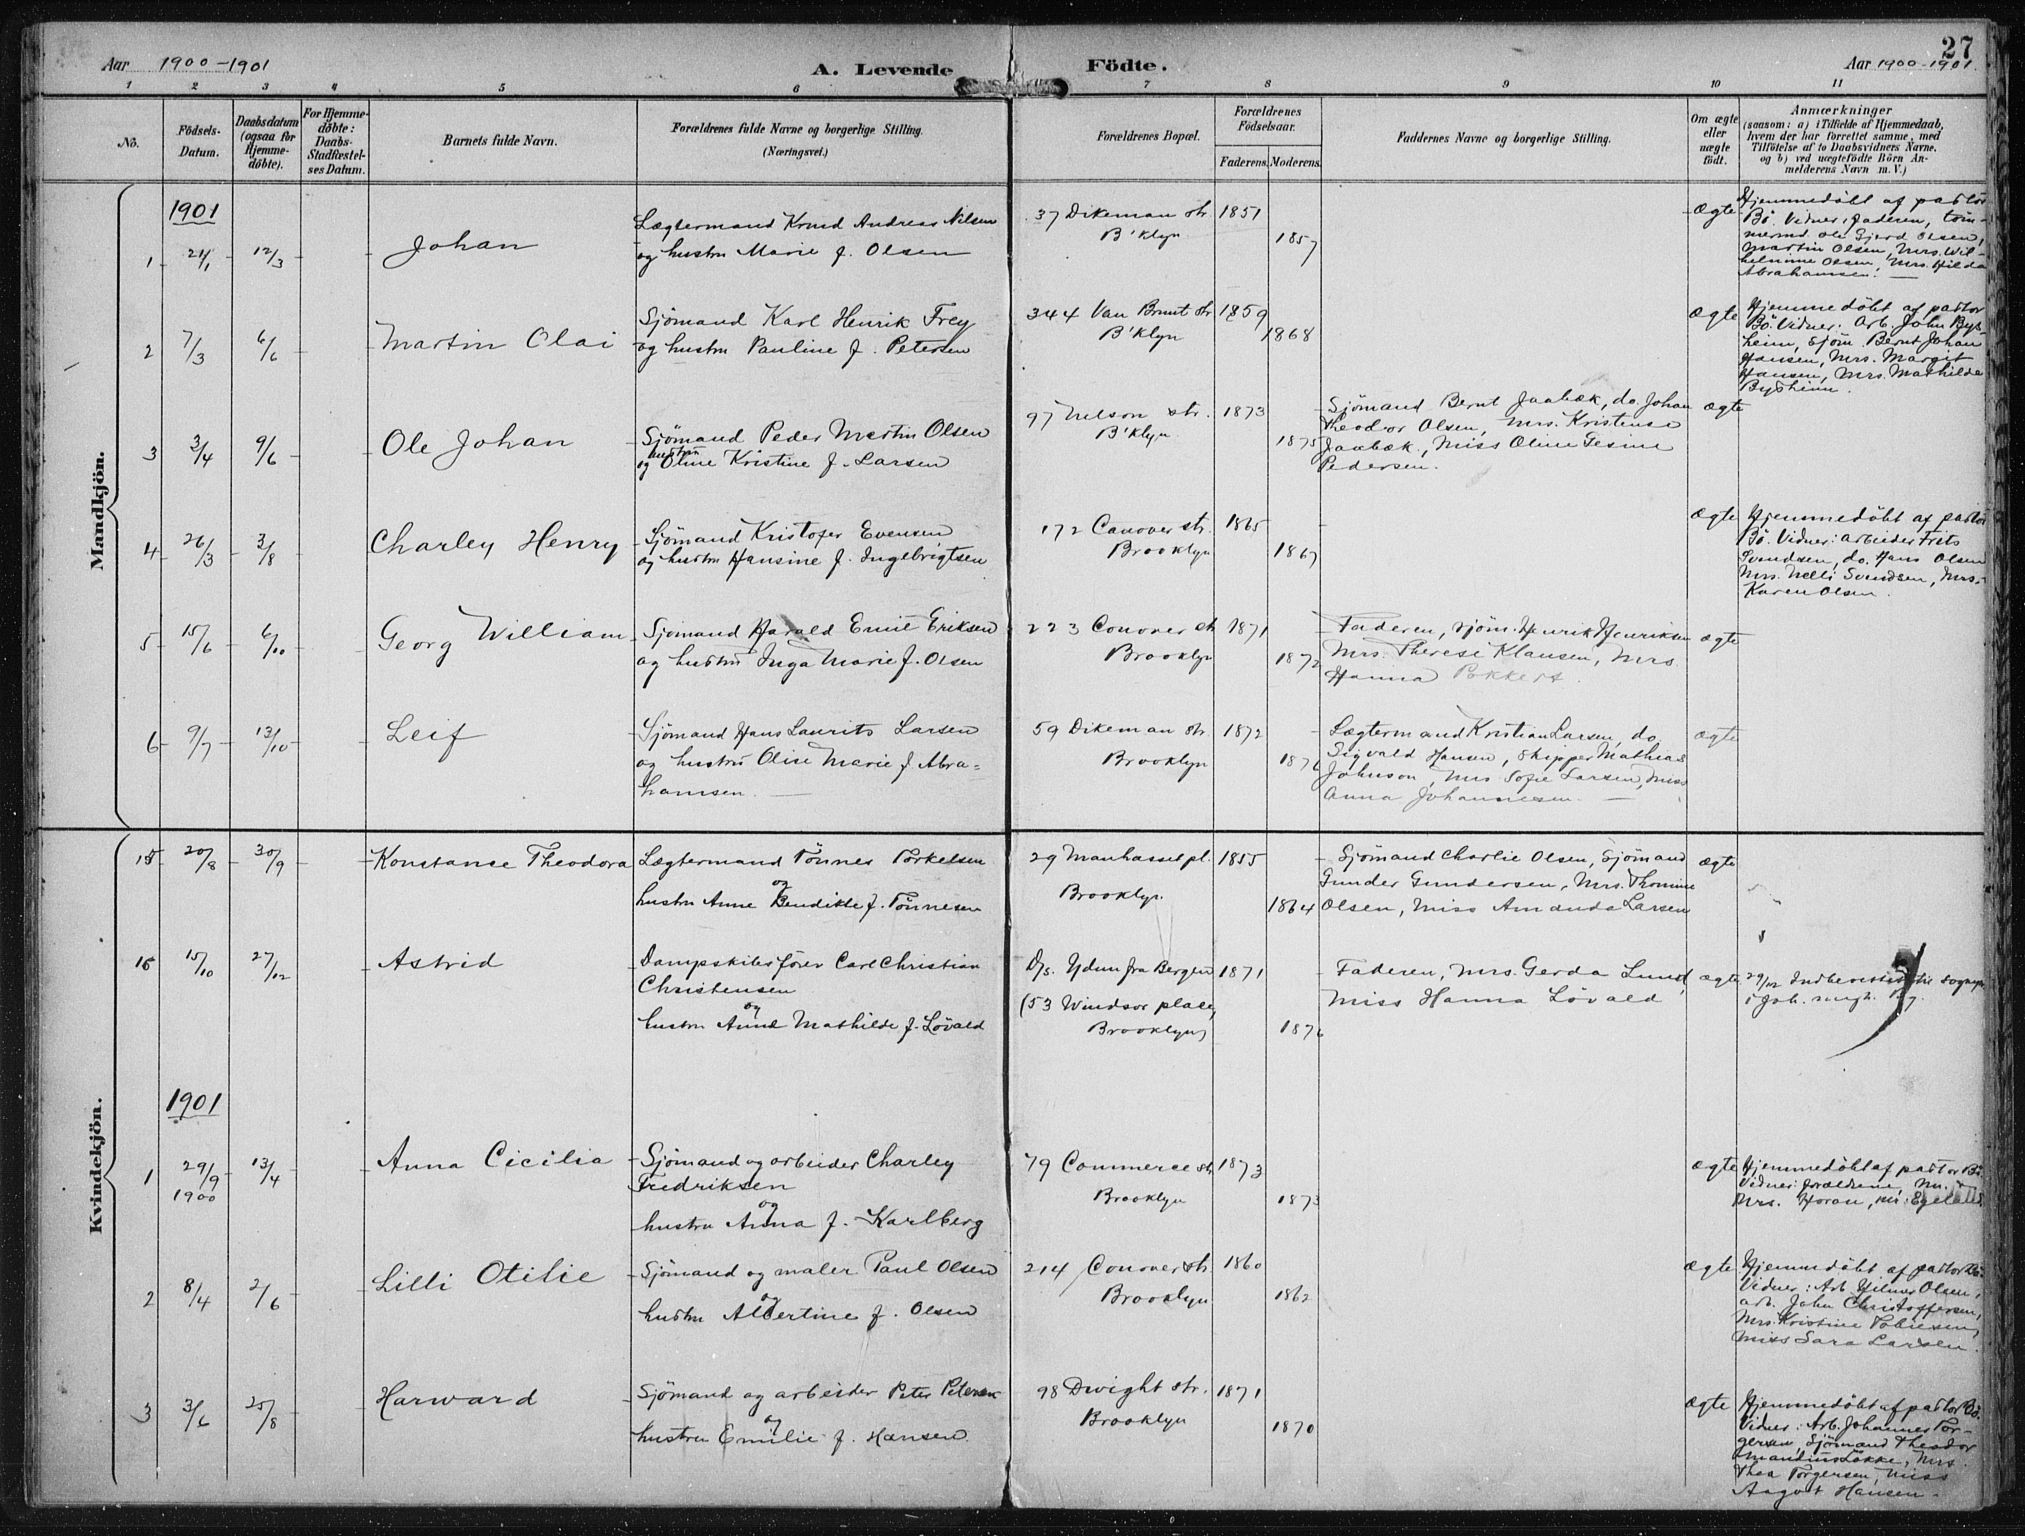 27
Aar 1900-1901
A. Levende
Födte.
Aar 1900-1901
1 2 3 4 5 6 7 8 9 10 11
No.
Födsels-
Datum.
Daabsdatum
(ogsaa for
Hjemme-
döbte).
For Hjemme-
døbte:
Daabs-
Stadfæstel-
ses Datum.
Barnets fulde Navn.
Forældrenes fulde Navne og borgerlige Stilling.
(Næringsvei.)
Forældrenes Bopæl.
Forældrenes
Födselsaar.
Faderens. Moderens.
Faddernes Navne og borgerlige Stilling.
Om ægte
eller
uægte
födt.
Anmærkninger
(saasom: a) i Tilfælde af Hjemmedaab,
hvem der har forrettet samme, med
Tilföielse af to Daabsvidners Navne.
og b) ved uægtefödte Börn An-
melderens Navn m. V.)
Mandkjön.
1901
1 21/1 12/3 Johan
Lægtermand Knud Andreas Nilsen
og hustru Marie f. Olsen
37 Dikeman str.
B'klyn
1851
1857
ægte
Hjemmedøbt af pastor
Bö. Vidner: Faderen, töm-
mermd. Ole Gjerd Olsen,
Martin Olsen, Mrs. Wil-
helmine Olsen, Mrs. Hilda
Abrahamsen.
2 7/3 6/6 Martin Olai
Sjömand Karl Henrik Frey
og hustru Pauline f. Petersen
344 Van Brunt str
B'klyn
1859
1868
ægte
Hjemmedøbt af pastor
Bö. Vidner: Arb. John Bys-
heim, sjöm. Bernt Johan
Hansen, Mrs. Margit
Hansen, Mrs. Mathilde
Bysheim.
3 3/4 9/6 Ole Johan
Sjömand Peder Martin Olsen
og hustru Oline Kristine f. Larsen
97 Nelson str.
B'klyn.
1873
1875
Sjömand Bernt Jaabæk, do. Johan
Theodor Olsen, Mrs. Kristense
Jaabæk, Miss Oline Tesine
Pedersen.
ægte
4 26/3 3/8 Charley Henry
Sjömand Kristofer Evensen
og hustru Hansine f. Ingebrigtsen
172 Conover str.
Brooklyn
1865
1867
ægte
Hjemmedøbt af pastor
Bö. Vidner: Arbeider Frits
Svendsen, do. Hans Olsen
Mrs. Nelli Svendsen, Mrs.
Karen Olsen.
5 15/6 6/10 Georg William
Sjömand Harald Emil Eriksen
og hustru Inga Marie f. Olsen
223 Conover str
Brooklyn
1871
1872
Faderen, sjöm. Henrik Henriksen
Mrs. Therese Klausen, Mrs.
Hanna Pokkert.
ægte
6 9/7 13/10 Leif
Sjömand Hans Laurits Larsen
og hustru Olise Marie f. Abra=
hamsen.
59 Dikeman str.
Brooklyn
1872
1876
Lægtermand Kristian Larsen, do.
Sigvald Hansen, Skipper Mathias
Johnson, Mrs. Sofie Larsen, Miss
Anna Johannesen.
ægte
Kvindekjön.
15 20/8 30/9 Konstanse Theodora
Lægtermand Tönnes Torkelsen
og
hustru Anne Bendikte f. Tönnesen
29 Manhasset pl.
Brooklyn.
1855
1864
Sjömand Charlie Olsen, Sjömand
Gunder Gundersen, Mrs. Thomine
Olsen, Miss Amanda Larsen
ægte
16 15/10 27/12 Astrid
Dampskibsförer Carl Christian
Christensen
og
hustru Anna Mathilde f. Lövald
D/s. Ydun fra Bergen
(53 Windsor place,
Brooklyn)
1871
1876
Faderen, Mrs. Gerda Lund,
Miss Hanna Lövald
ægte
29/12 Indberettet til sognepr.
i Joh. mgh. Bg.
1901
1 29/9 1900 13/4 Anna Cicilia
Sjömand og arbeider Charley
Fredriksen
og
hustru Anna f. Karlberg
79 Commerce str
Brooklyn
1873
1873
ægte
Hjemmedøbt af pastor Bö
Vidner: Forældrene, Mr. &
Mrs. Horan,
2 8/4 2/6 Lilli Otilie
Sjömand og maler Paul Olsen
og
hustru Albertine f. Olsen
214 Conover str.
Brooklyn
1860
1862
ægte
Hjemmedøbt af pastor Bö.
Vidner: Arb. Hilmer Olsen,
arb. John Christoffersen,
Mrs. Kristine Tobiesen,
Miss Sara Larsen.
3 3/6 25/8 Harward
Sjömand og arbeider Peter Petersen
og
hustru Emilie f. Hansen.
98 Dwight str.
Brooklyn
1871
1870
ægte
Hjemmedøbt af pastor Bö.
Vidner: Arb. Johannes Tor-
gersen, Sjömand Theodor
Amandius Løkke, Mrs.
Thea Torgersen, Miss
Aagot Hansen.